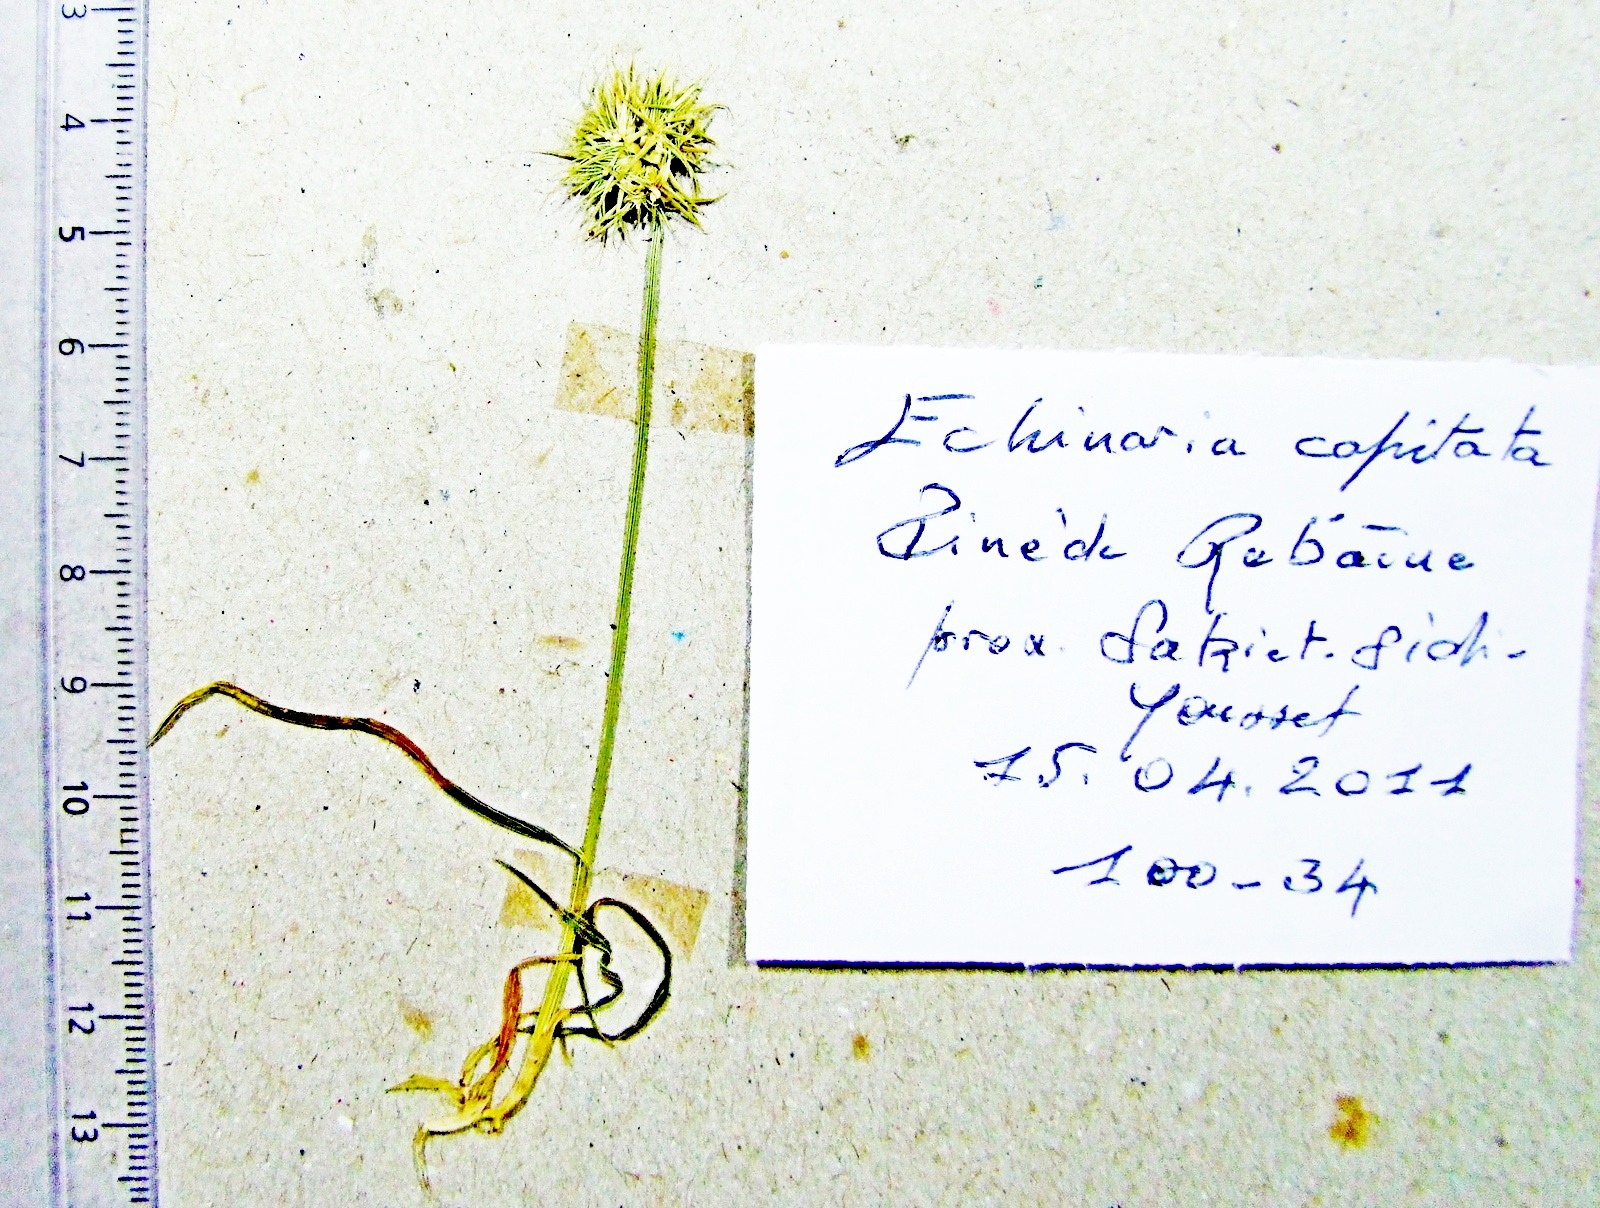 3
4
5
6
7
8
9
10
11
12
13
Echinaria capitata
Pinède Rebāïne
prox. Sakiet-Sidi-
Youssef
15.04.2011
100-34